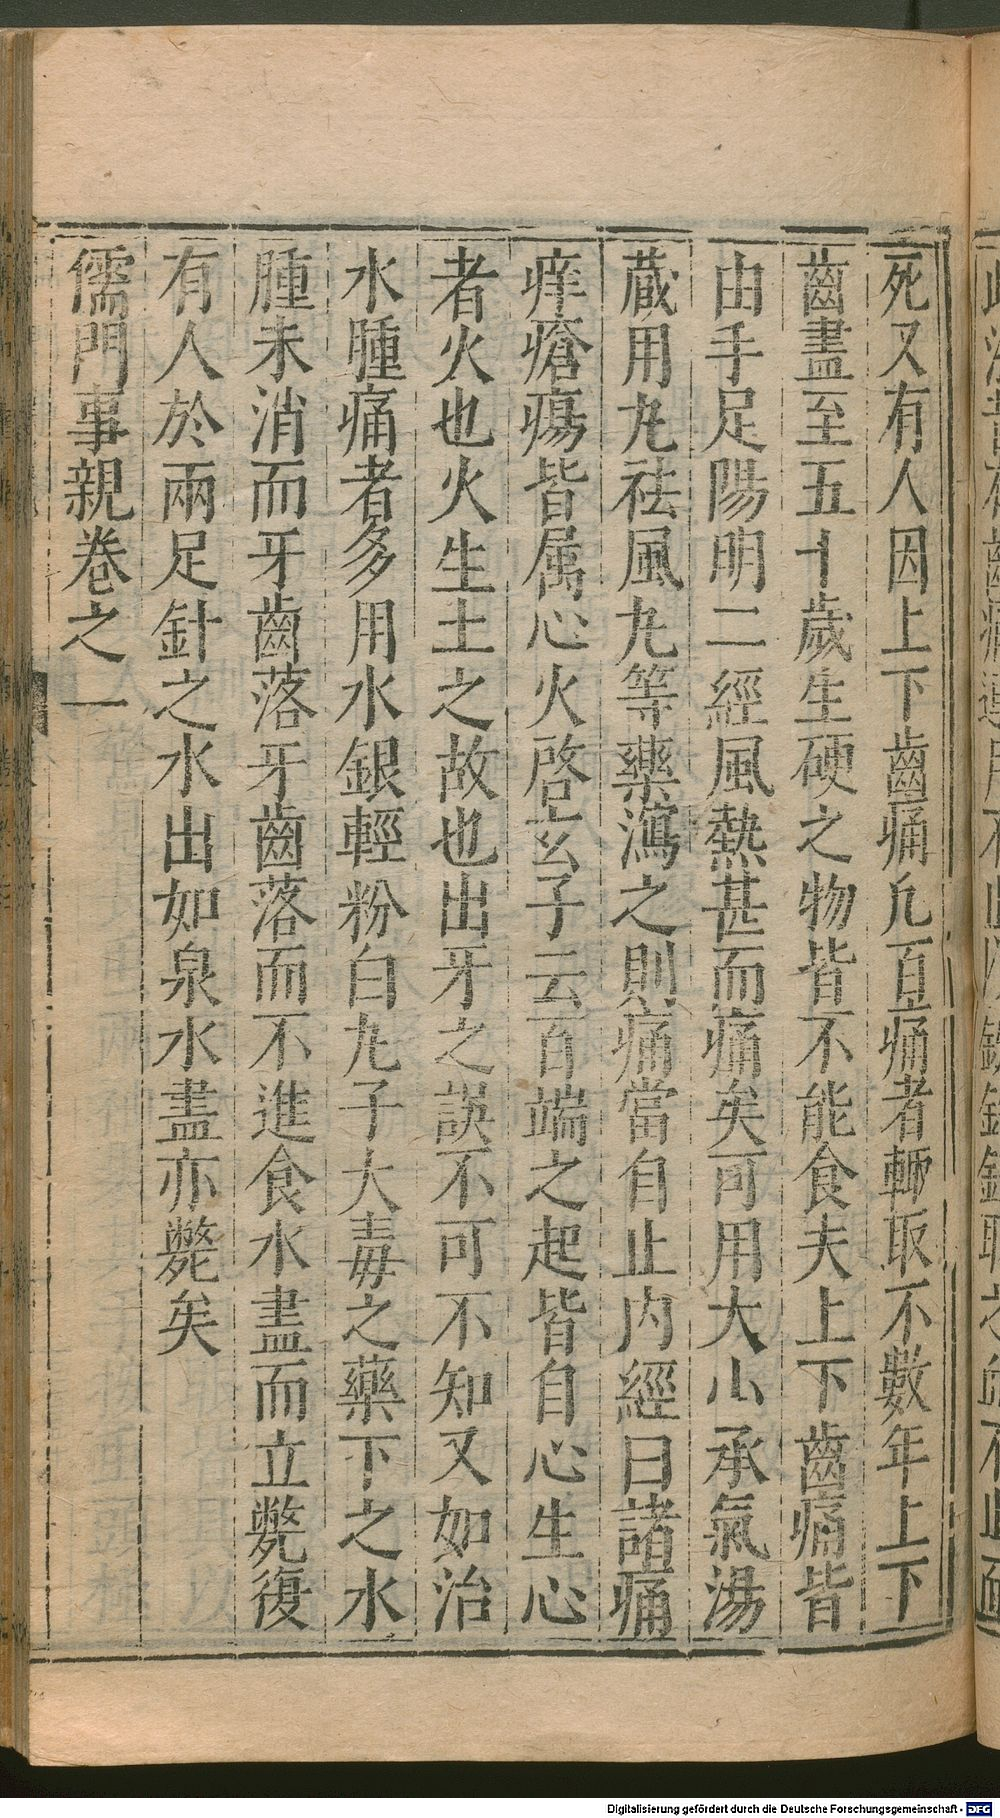 死又有人因上下齒痛凢百痛者輙取不數年上下
齒盡至五十歲生硬之物皆不能食夫上下齒痛皆
由手足陽明二經風熱甚而痛矣可用大小承氣湯
蔵用丸祛風丸等藥瀉之則痛當自止内經曰諸痛
痒瘡瘍皆属心火啓玄子云百端之起皆自心生心
者火也火生土之故也出牙之誤不可不知又如治
水腫痛者多用水銀輕粉白丸子大毒之藥下之水
腫未消而牙齒落牙齒落而不進食水盡而立斃復
有人於兩足針之水出如泉水盡亦斃矣
儒門事親卷之一
Digitalisierung gefördert durch die Deutsche Forschungsgemeinschaft - DFG